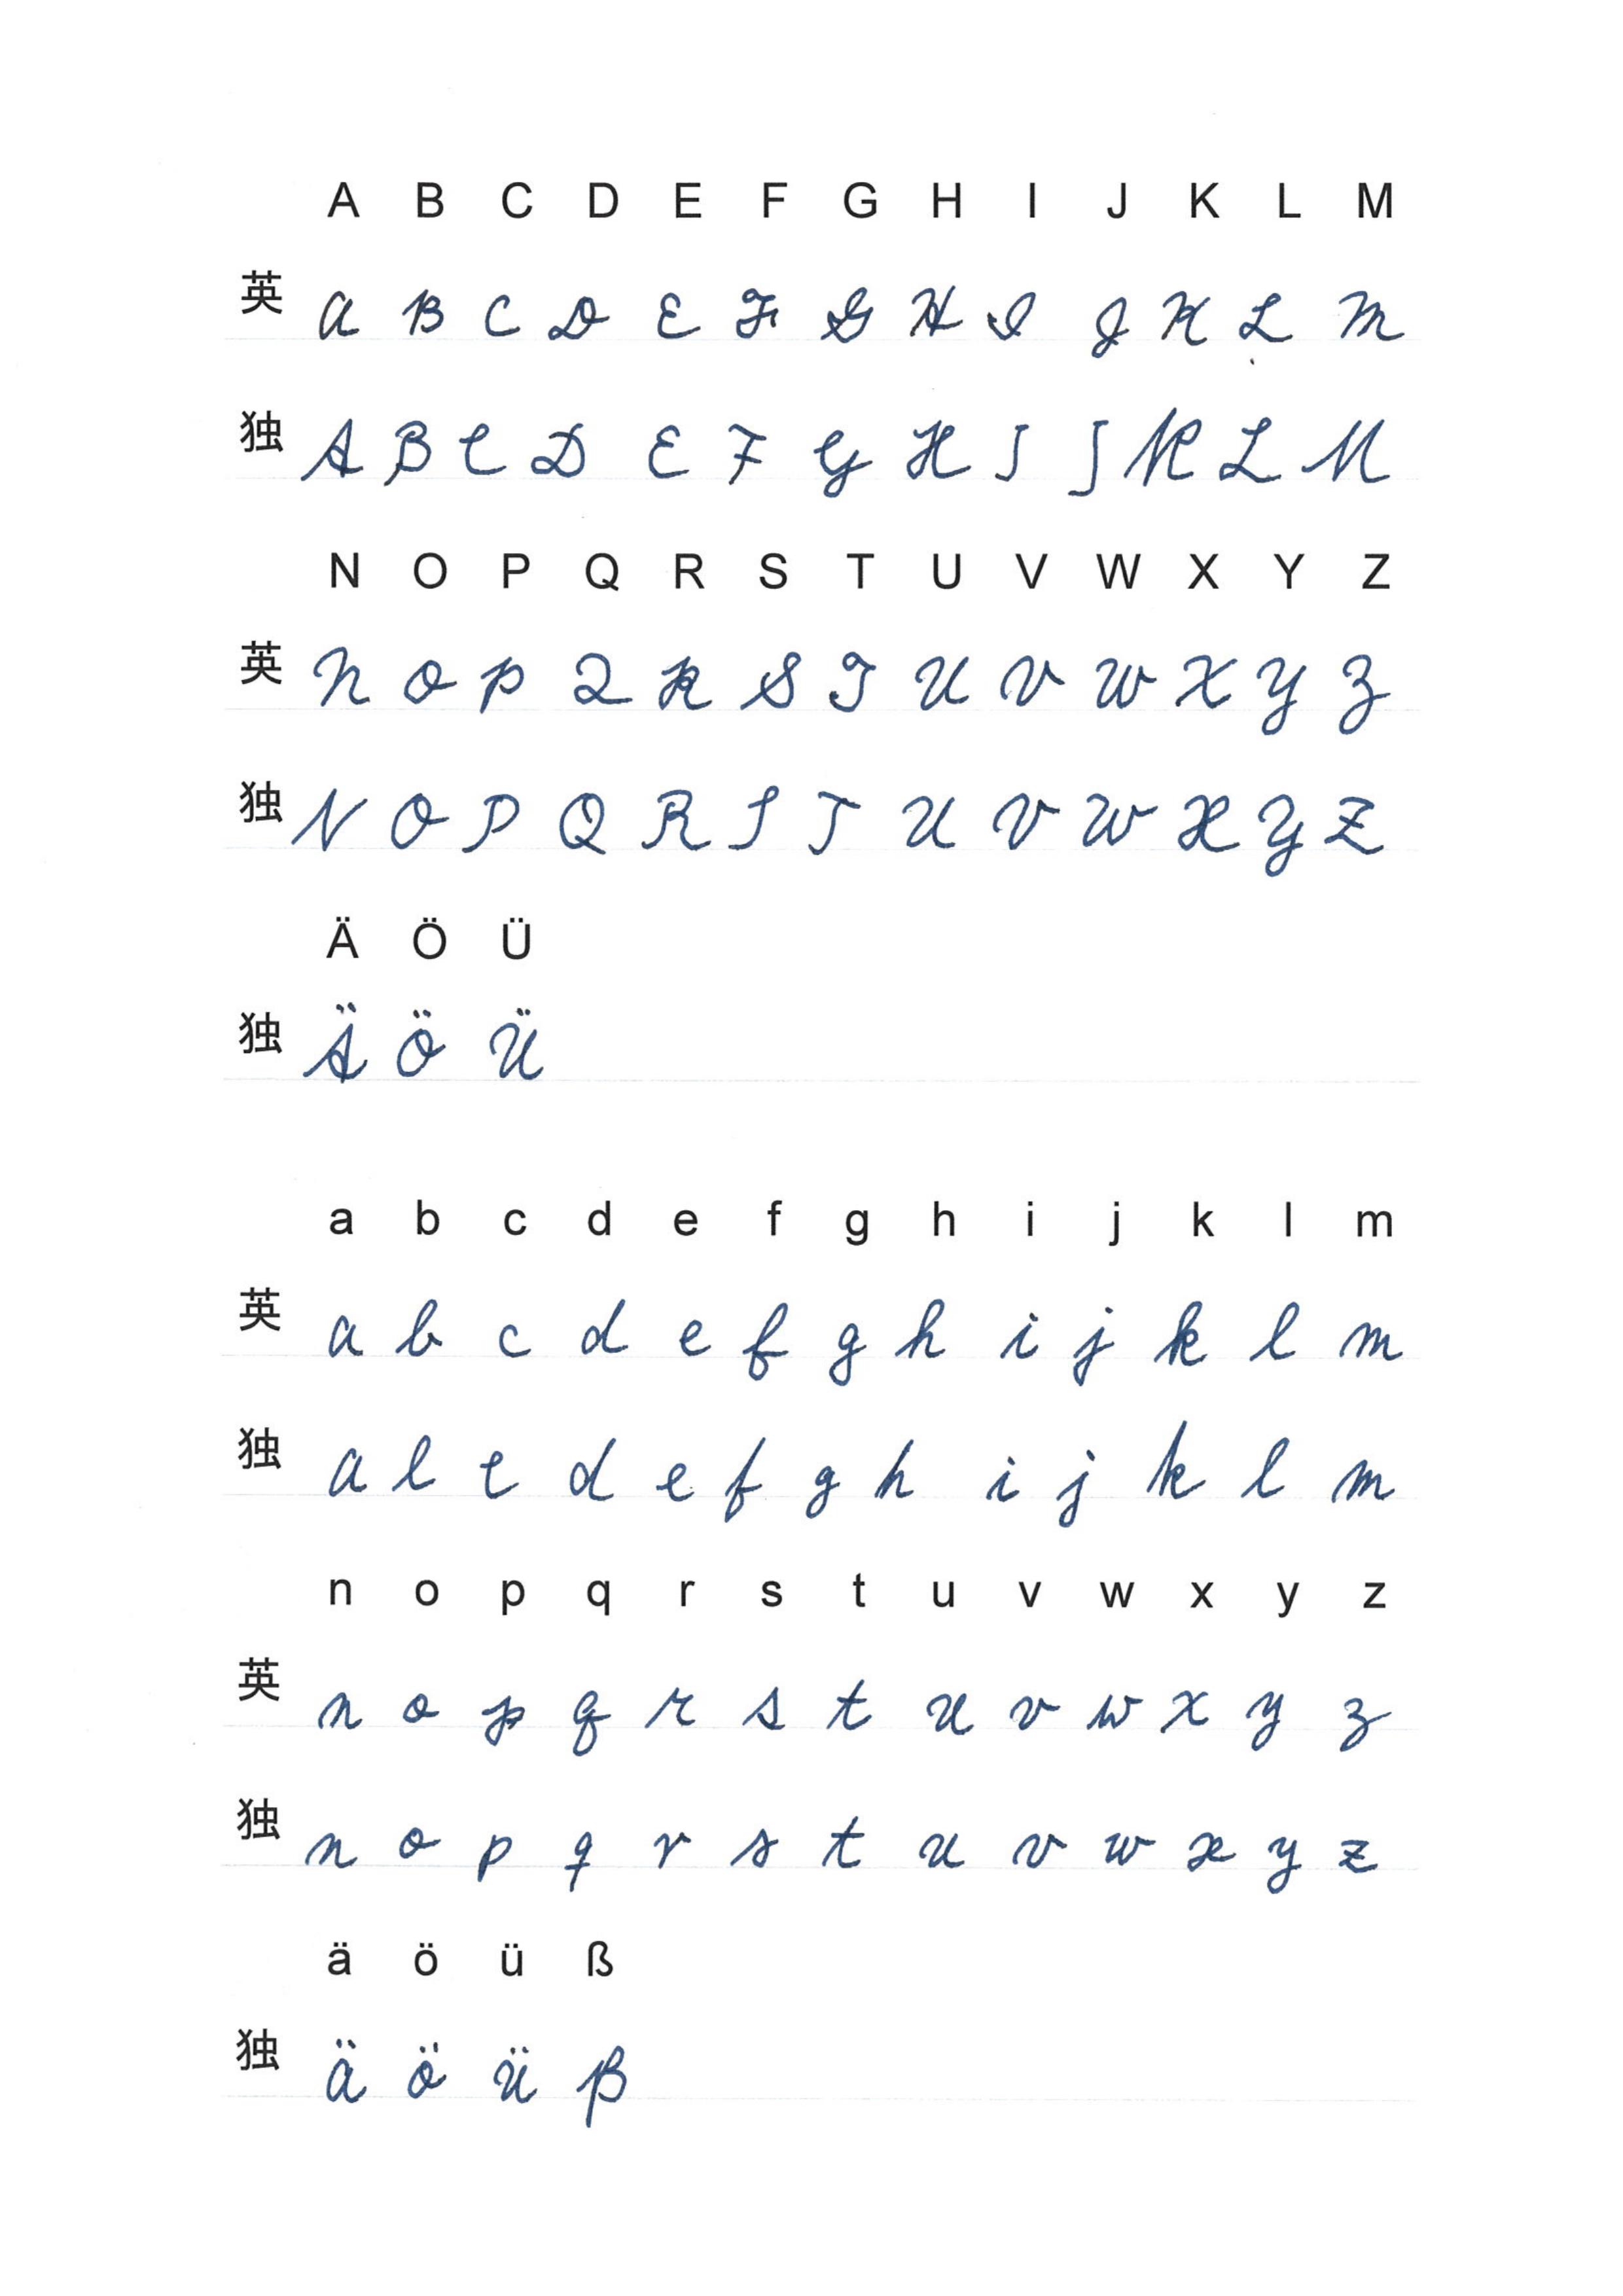 A B C D E F G H I J K L M
英 A B C D E F G H I J K L M
独 A B C D E F G H I J K L M
N O P Q R S T U V W X Y Z
英 N O P Q R S T U V W X Y Z
独 N O P Q R S T U V W X Y Z
Ä Ö Ü
独 Ä Ö Ü
a b c d e f g h i j k l m
英 a b c d e f g h i j k l m
独 a b c d e f g h i j k l m
n o p q r s t u v w x y z
英 n o p q r s t u v w x y z
独 n o p q r s t u v w x y z
ä ö ü ß
独 ä ö ü ß